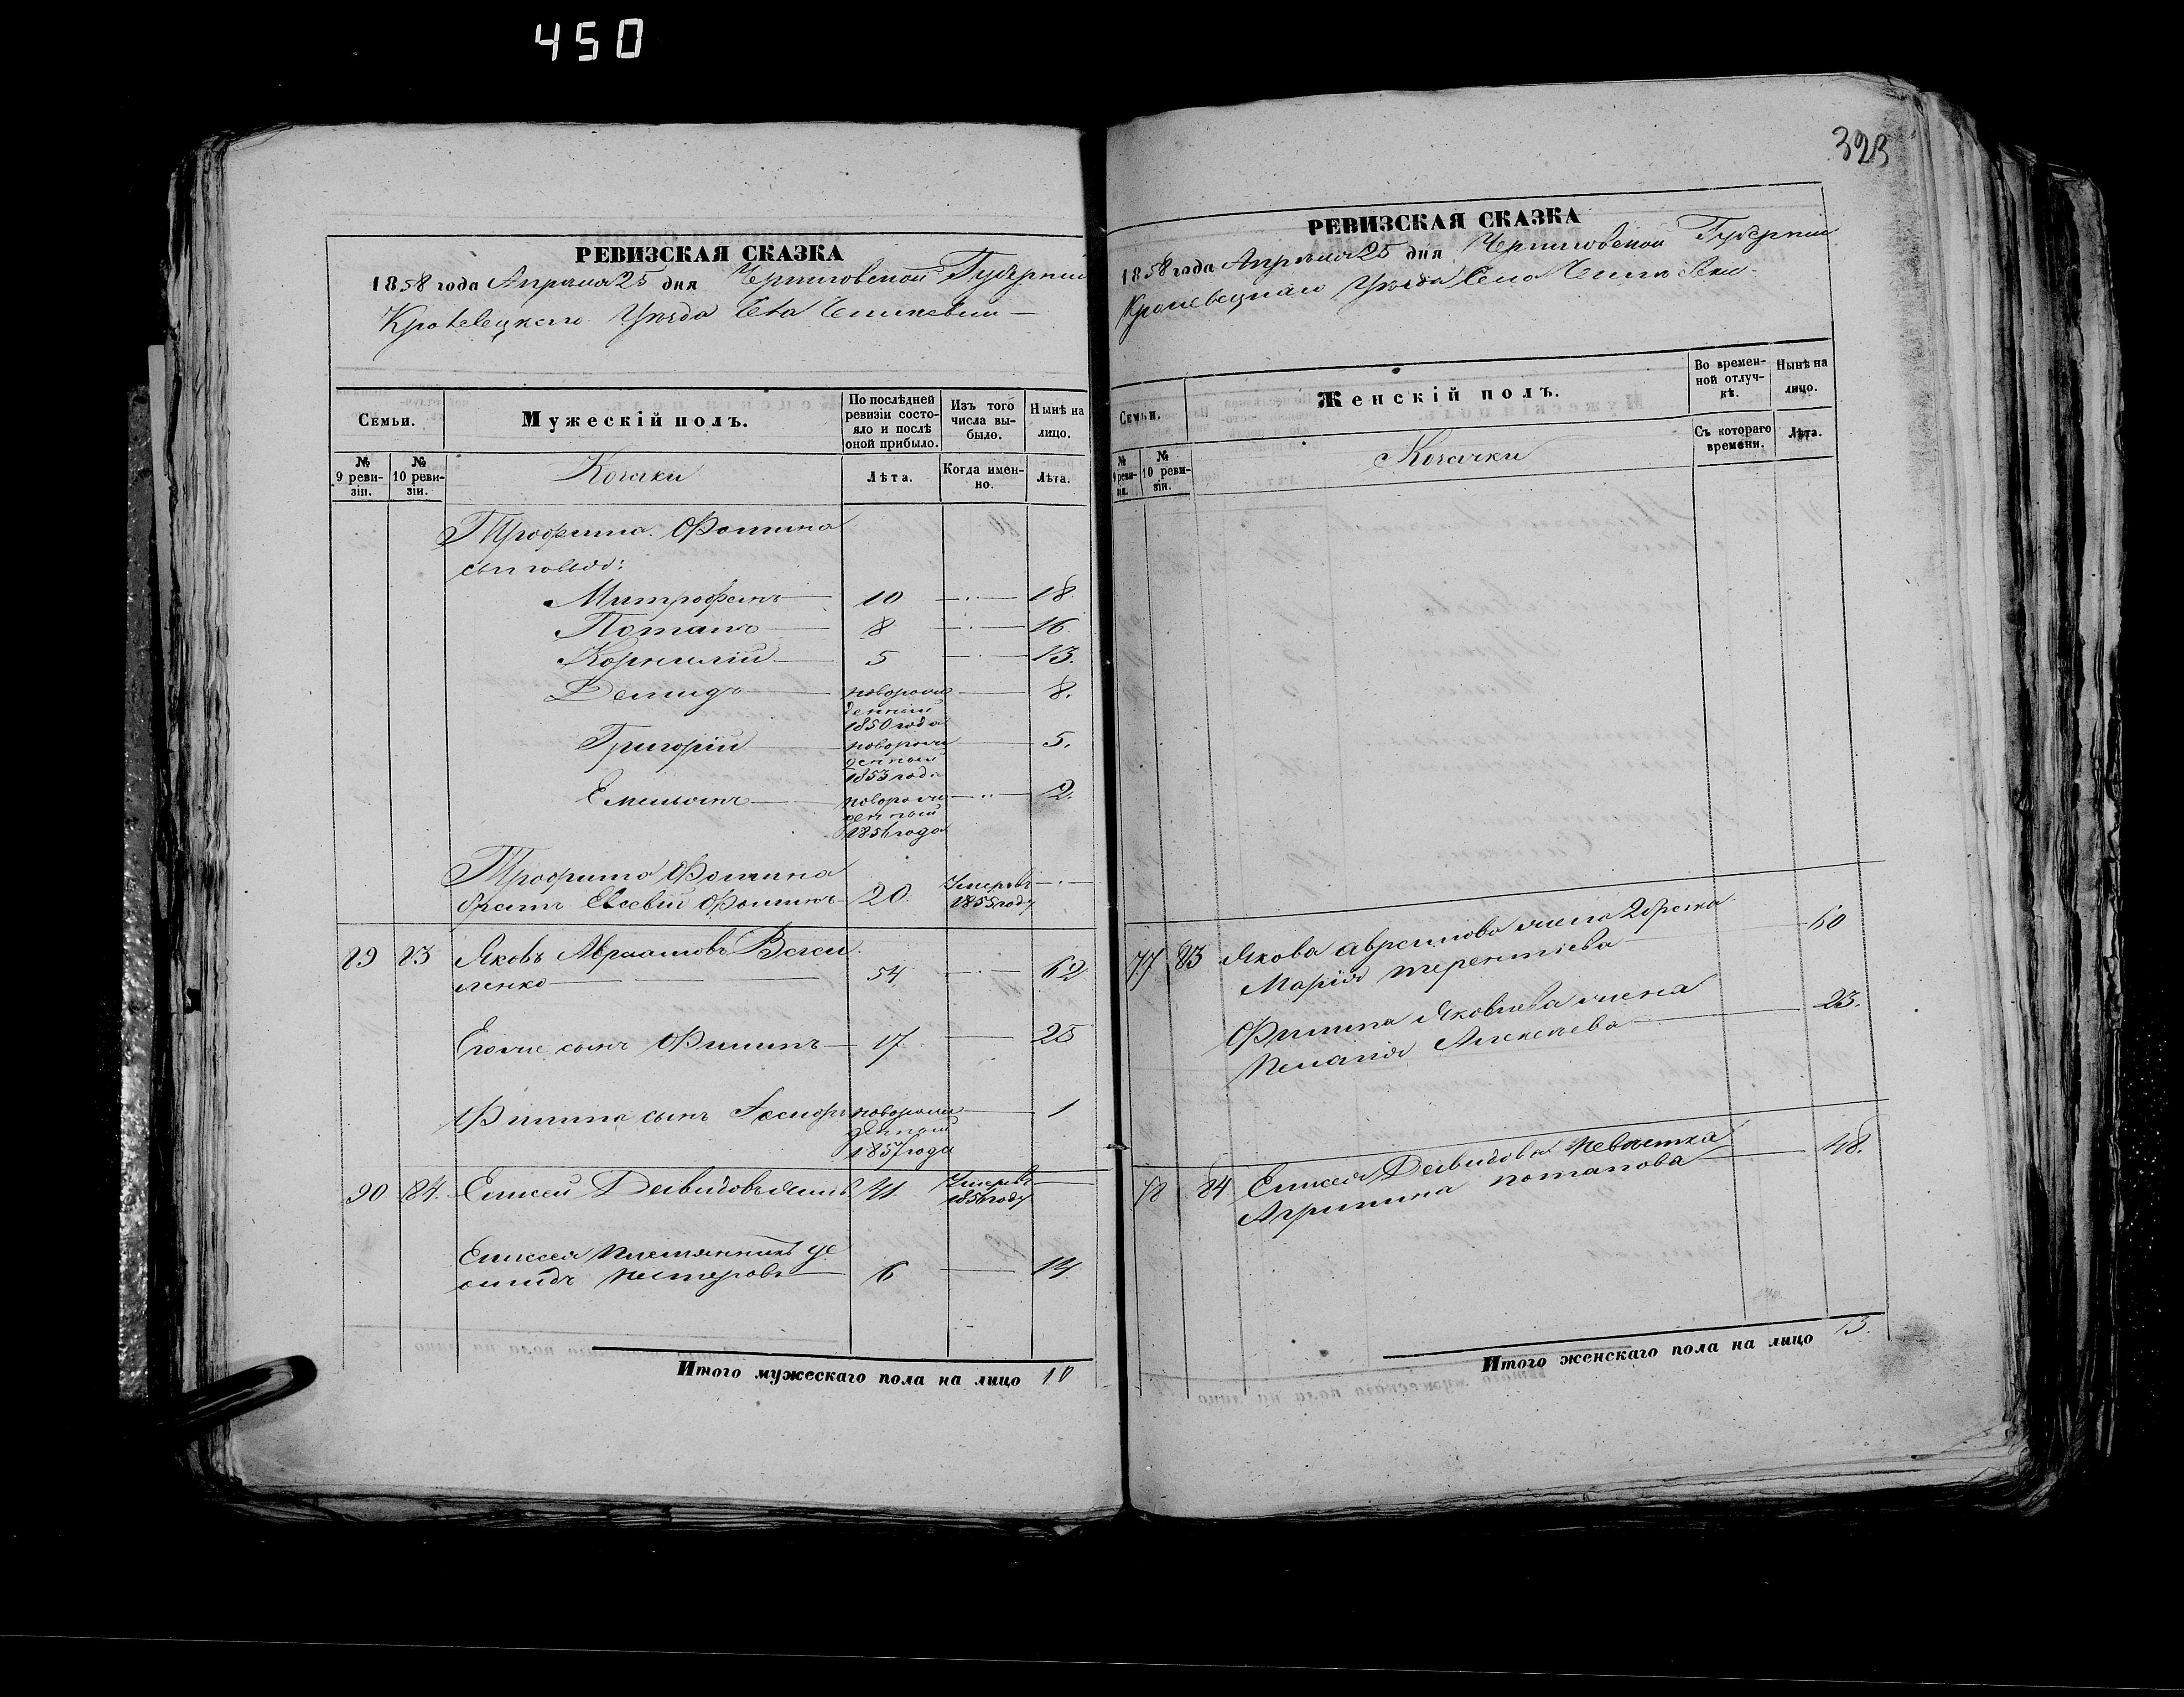 450
323
РЕВИЗСКАЯ СКАЗКА
1858 года Апреля 25 дня Черниговской Губернии
Кролевецкаго Уезда Села
Семьи.
Мужескій полъ.
По послѣдней ревизіи состояло и послѣ оной прибыло.
Изъ того числа выбыло.
Нынѣ на лицо.
№ 9 ревизіи.
№ 10 ревизіи.
Козаки
Лѣта.
Когда именно.
Лѣта.
Трофима Фомина
сыновья:
Митрофанъ 10 18
Потапъ 8 16.
Корнилій 5 13.
Демидъ новорожденный 1850 года 8.
Григорій новорожденный 1853 года 5.
Емельянъ новорожденный 1856 года 2.
Трофима Фомина
братъ Евсевій Фоминъ 20. Умеръ 1855 году
89 83 Яковъ Авраамовъ
ленко 54 62
Егоже сынъ Филипъ 17 25
Филипа сынъ новорожденный 1857 года 1
90 84. Елисей Давидовъ 41 Умеръ 1856 году
Елисея племянникъ де
мидъ Нестеровъ 6 14.
Итого мужескаго пола на лицо 10
РЕВИЗСКАЯ СКАЗКА
1858 года Апреля 25 дня Черниговской Губернии
Кролевецкаго Уезда Села
Семьи.
Женскій полъ.
Во временной отлучкѣ.
Нынѣ на лицо.
№ 9 ревизіи.
№ 10 ревизіи.
Козачки
Съ котораго времени.
Лѣта.
77 83 Якова Аврамова жена 2 брака
Марія Терентіева 60
Филипа Яковлева жена
Пелагія Алексеева 23.
78 84 Елисея Давидова невестка
Агрипина Потапова 48.
Итого женскаго пола на лицо 3.